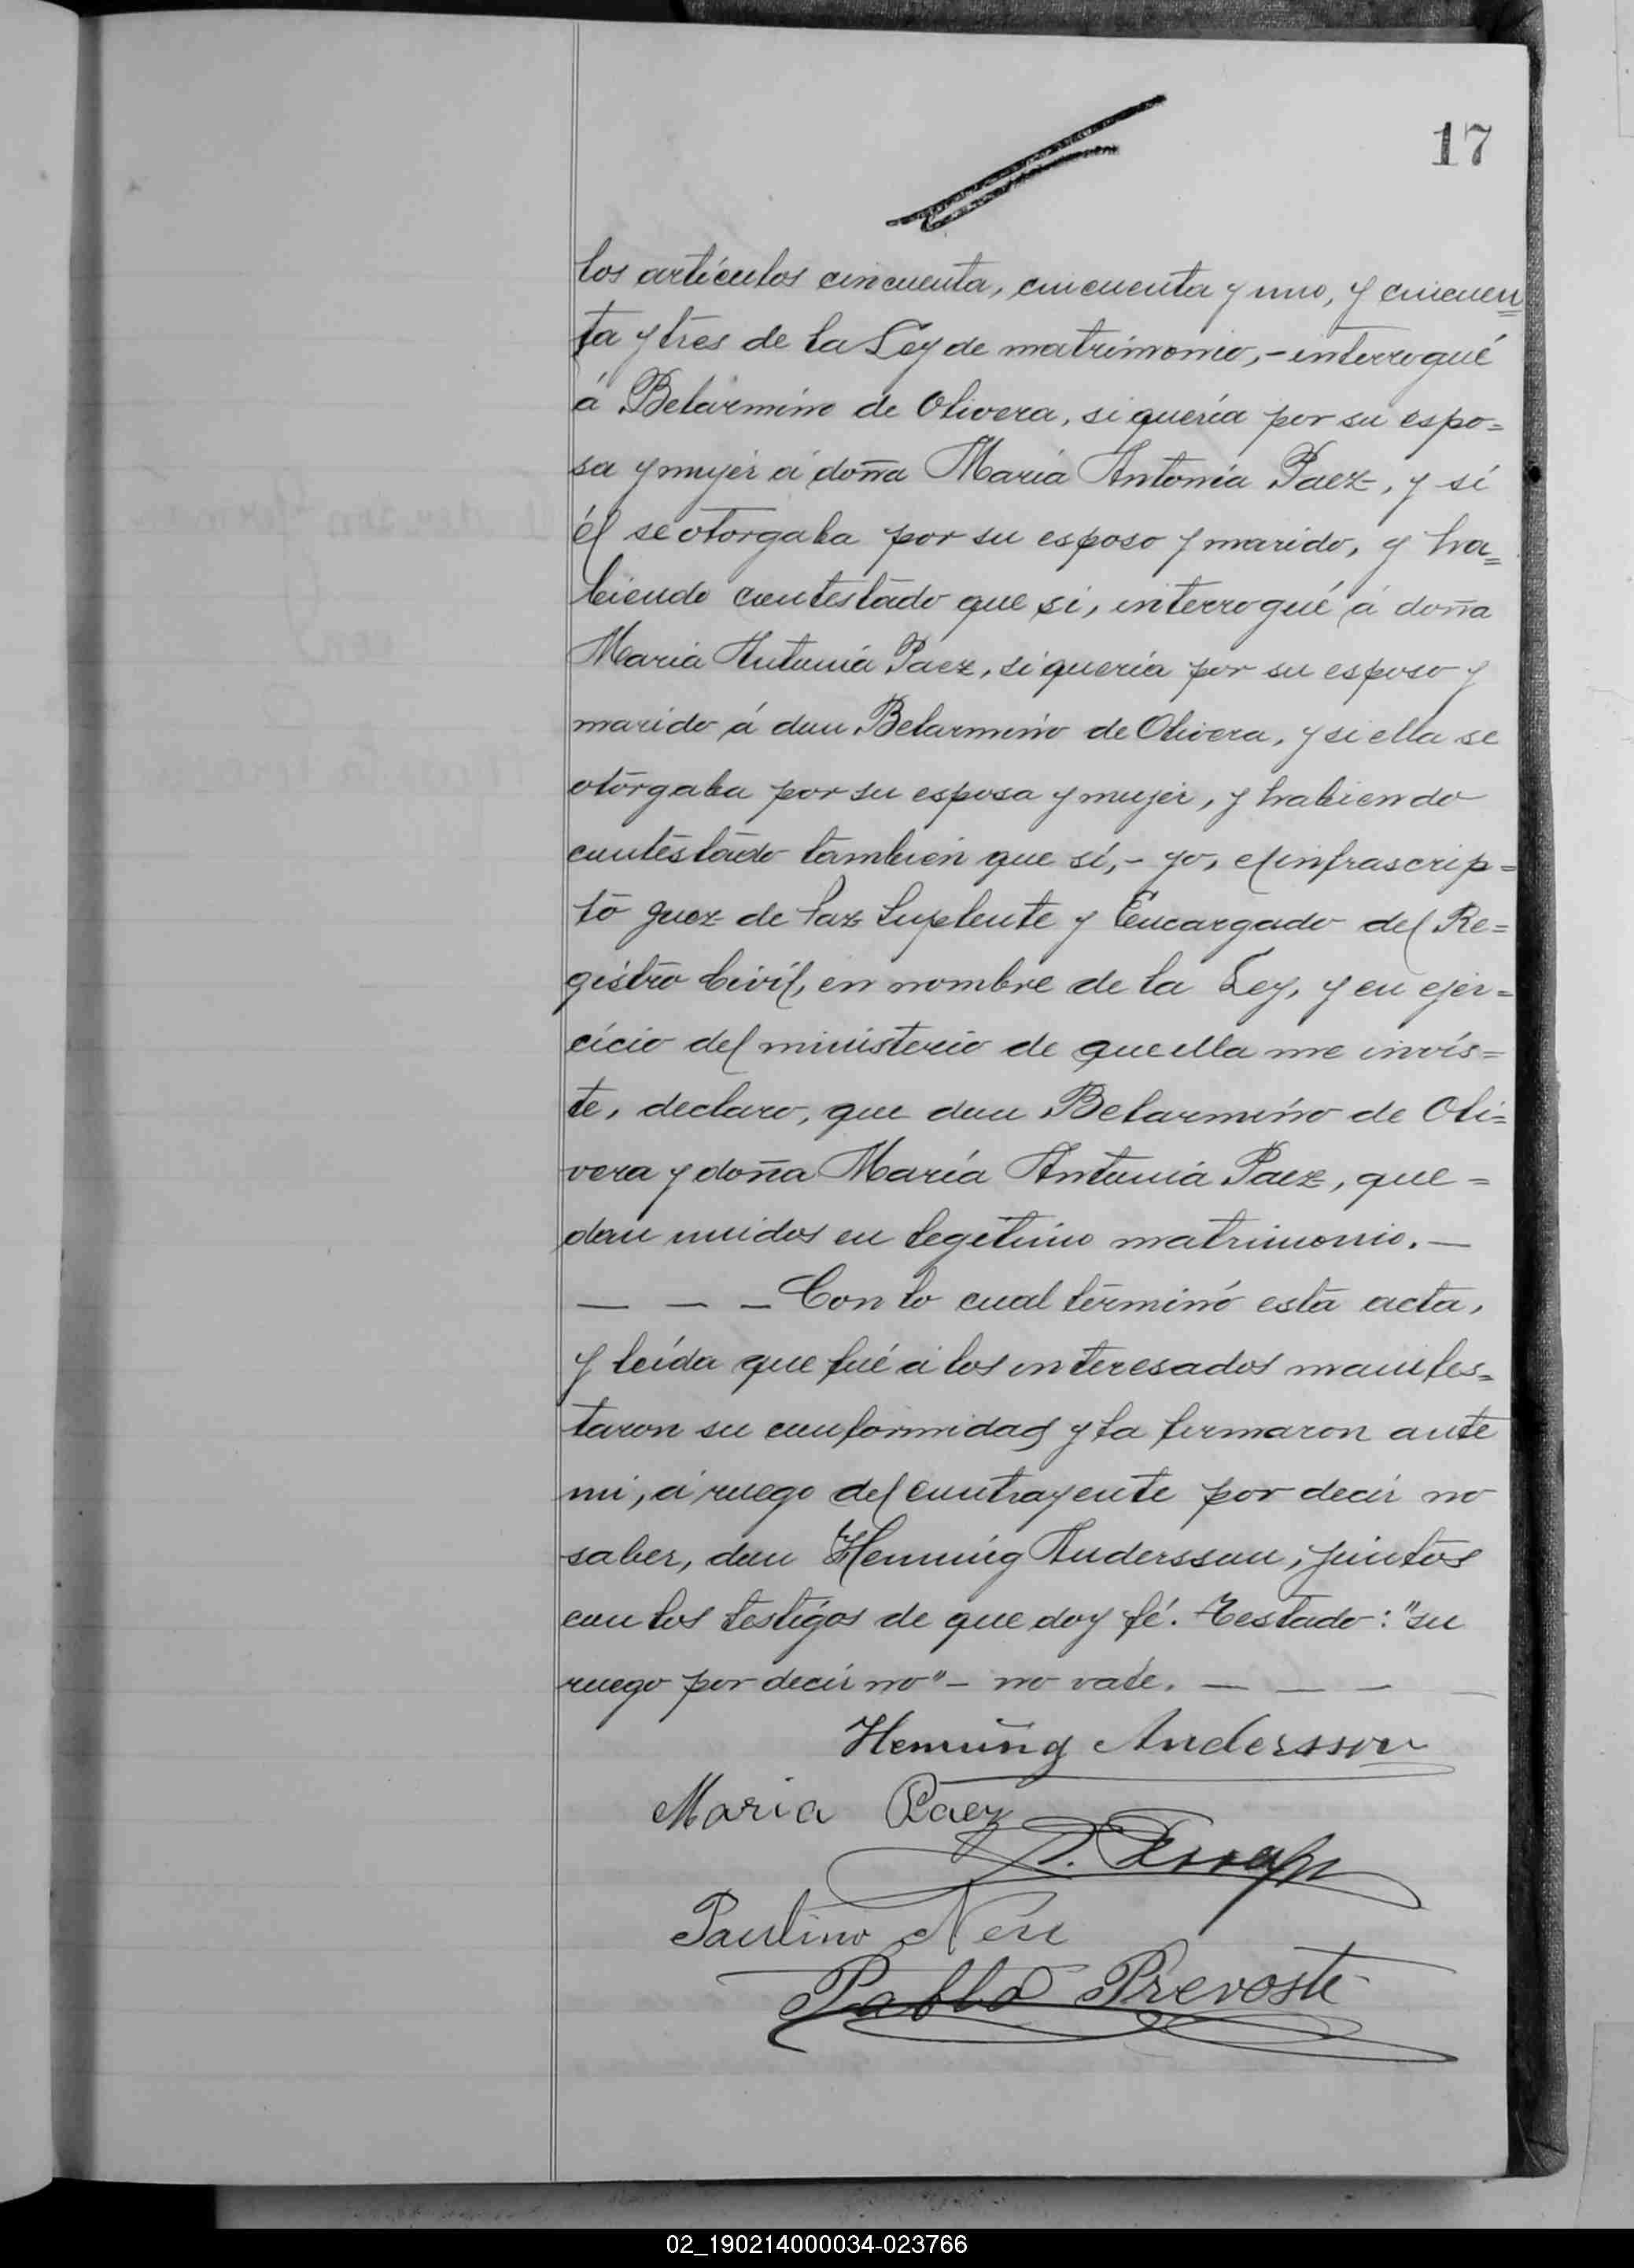 17
los artículos cincuenta, cincuenta y uno, y cincuen=
ta y tres de la Ley de matrimonio,- interrogué
á Belarmino de Olivera, si quería por su espo=
sa y mujer á doña María Antonia Paez, y si
él se otorgaba por su esposo y marido, y ha=
biendo contestado que si, interrogué á doña
María Antonia Paez, si quería por su esposo y
marido á don Belarmino de Olivera, y si ella se
otorgaba por su esposa y mujer, y habiendo
contestado tambien que sí,- yo, el infrascrip=
to Juez de Paz Suplente y Encargado del Re=
gistro Civil, en nombre de la Ley, y en ejer=
cicio del ministerio de que ella me invis=
te, declaro, que don Belarmino de Oli=
vera y doña María Antonia Paez, que=
dan unidos en legitimo matrimonio. —
— — — Con lo cual terminó esta acta,
y leída que fué á los interesados manifes=
taron su conformidad y la firmaron ante
mi, á ruego del contrayente por decir no
saber, don Henning Andersson, juntos
con los testigos de que doy fé. Testado: "su
ruego por decir no" — no vale. — — — —
Henning Andersson
Maria Paez
Paulino Neri
Pablo Prevoste
02_190214000034-023766